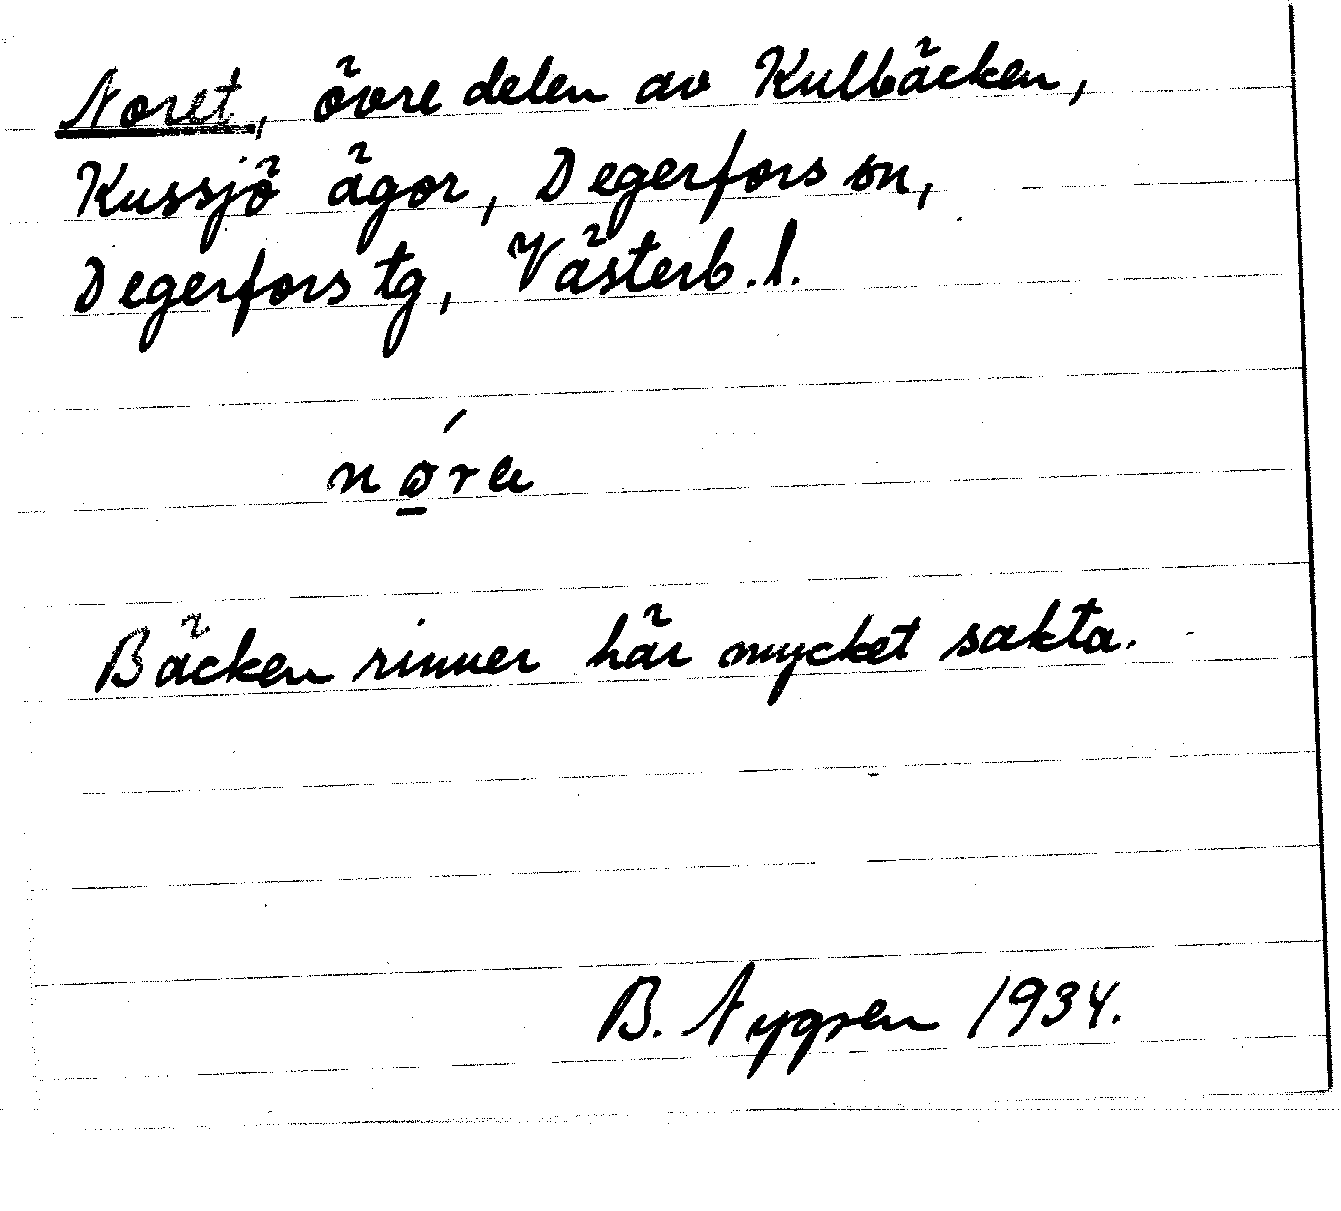 Noret, övre delen av Kulbäcken,
Kussjö ägor, Degerfors sn,
Degerfors tg, Västerb. l.
Bäcken rinner här mycket sakta.
B. Nygren 1934.